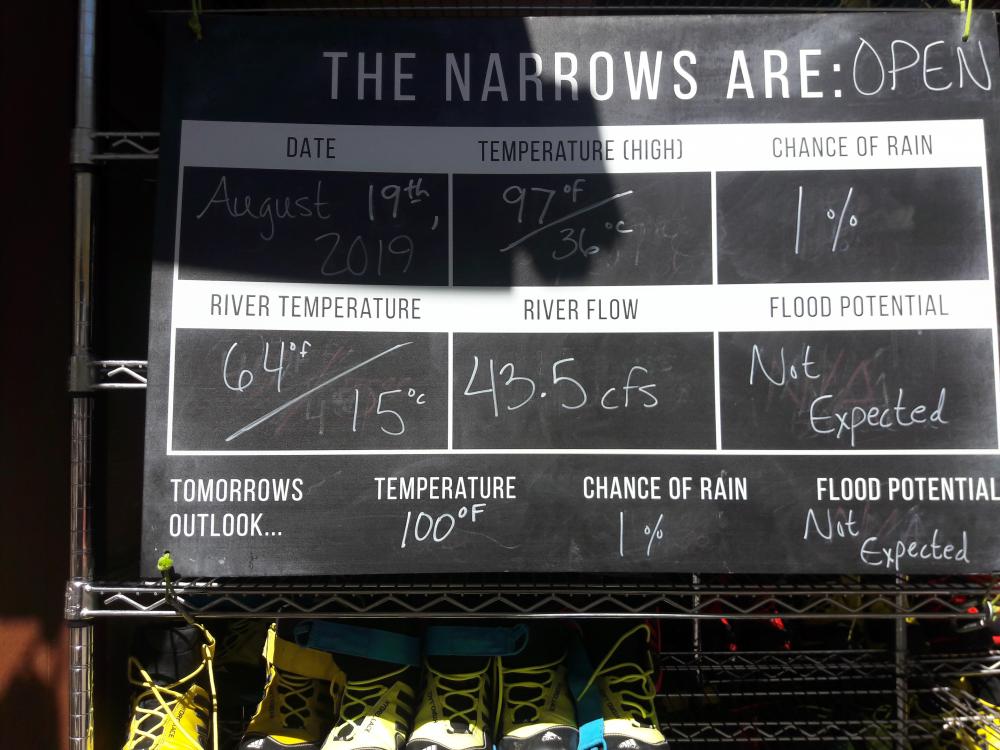 THE NARROWS ARE: OPEN
DATE TEMPERATURE (HIGH) CHANCE OF RAIN
August 19th, 97°F 1%
2019 36°C
RIVER TEMPERATURE RIVER FLOW FLOOD POTENTIAL
64°F 43.5 cfs Not
15°C Expected
TOMORROWS TEMPERATURE CHANCE OF RAIN FLOOD POTENTIAL
OUTLOOK... 100°F 1% Not
Expected